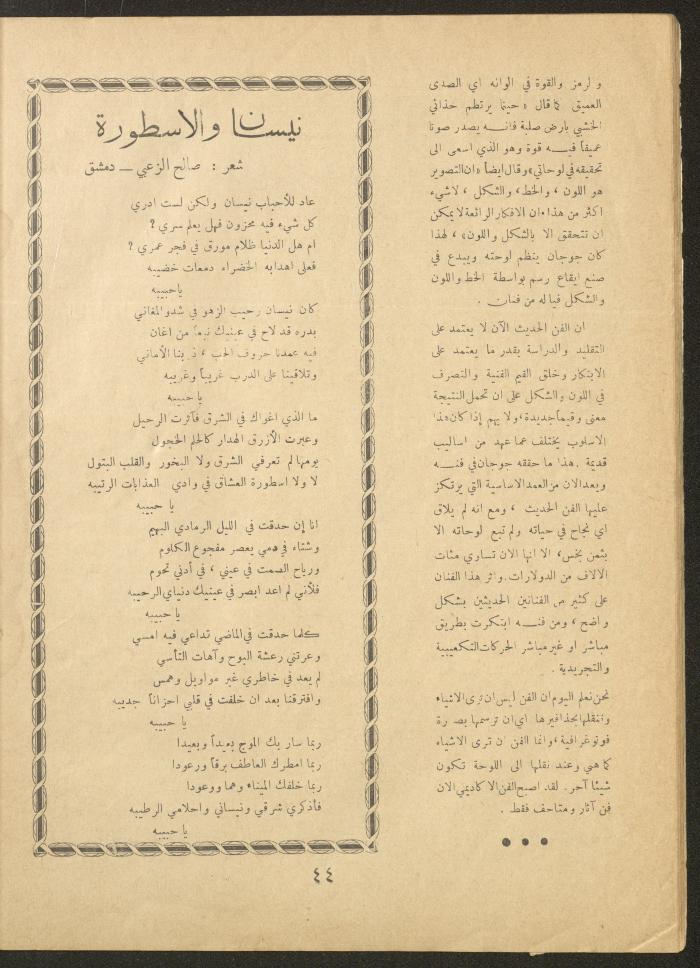 و لرمز والقوة في الوانه اي الصدى
العميق كما قال « حينما يرتطم حذائي
الخشبي بارض صلبة فانـــه يصدر صوتا
عميقاً فيـــه قوة وهو الذي اسعى الى
تحقيقه في لوحاتي» وقال ايضاً «ان التصوير
هو اللون ، والخط، والشكل ، لاشيء
اكثر من هذا . ان الافكار الرائعة لا يمكن
ان تتحقق الا بالشكل واللون» ، لهذا
كان جوجان ينظم لوحته ويبدع في
صنع ايقاع رسم بواسطة الخط واللون
والشكل فياله من فنان .
ان الفن الحديث الآن لا يعتمد على
التقليد والدراسة بقدر ما يعتمد على
الابتكار وخلق القيم الفنية والتصرف
في اللون والشكل على ان تحمل النتيجة
معنى وقيماً جديدة، ولا يهم إذا كان هذا
الاسلوب يختلف عما عهد من اساليب
قديمة . هذا ما حققه جوجان في فنـــه
ويعد الان من العمد الاساسية التي يرتكز
عليها الفن الحديث ، ومع انه لم يلاق
اي نجاح في حياته ولم تبع لوحاته الا
بثمن بخس، الا انها الان تساوي مئات
الالاف من الدولارات. واثر هذا الفنان
على كثير من الفنانين الحديثين بشكل
واضح ، ومن فنـــه ابتكرت بطريق
مباشر او غير مباشر الحركات التكعيبية
والتجريدية .
نحن نعلم اليوم ان الفن ليس ان نرى الاشياء
وننقلها بحذافيرها اي ان نرسمها بصورة
فوتوغرافية ، وانما الفن ان نرى الاشياء
كما هي وعند نقلها الى اللوحة تكون
شيئاً آخر. لقد اصبح الفن الاكاديمي الان
فن آثار ومتاحف فقط .
نيسان والاسطورة
شعر : صالح الزعبي ــ دمشق
عاد للأحباب نيسان ولكن لست ادري
كل شيء فيه محزون فهل يعلم سري ؟
ام هل الدنيا ظلام مورق في فجر عمري ؟
فعلى اهدابه الخضراء دمعات خضيبه
يا حبيبه
كان نيسان رحيب الزهو في شدو المغاني
بدره قد لاح في عينيك نبعاً من اغان
فيه عمدنا حروف الحب ، ذوبنا الأماني
وتلاقينا على الدرب غريباً وغريبه
يا حبيبه
ما الذي اغواك في الشرق فآثرت الرحيل
وعبرت الأزرق الهدار كالحلم الخجول
يومها لم تعرفي الشرق ولا البخور والقلب البتول
لا ولا اسطورة العشاق في وادي العذابات الرتيبه
يا حبيبه
انا إن حدقت في الليل الرمادي البهيم
وشتاء في دمي يعصر مفجوع الكلوم
ورياح الصمت في عيني ، في أدني تحوم
فلأني لم اعد ابصر في عينيك دنياي الرحيبه
يا حبيبه
كلما حدقت في الماضي تداعى فيه امسي
وعرتني رعشة البوح وآهات التأسي
لم يعد في خاطري غير مواويل وهمس
وافترقنا بعد ان خلفت في قلبي احزاناً جديبه
يا حبيبه
ربما سار بك الموج بعيداً وبعيدا
ربما امطرك العاطف برقاً ورعودا
ربما خلفك الميناء وهما ووعودا
فأذكري شرقي ونيساني واحلامي الرطيبه
يا حبيبه
٤٤